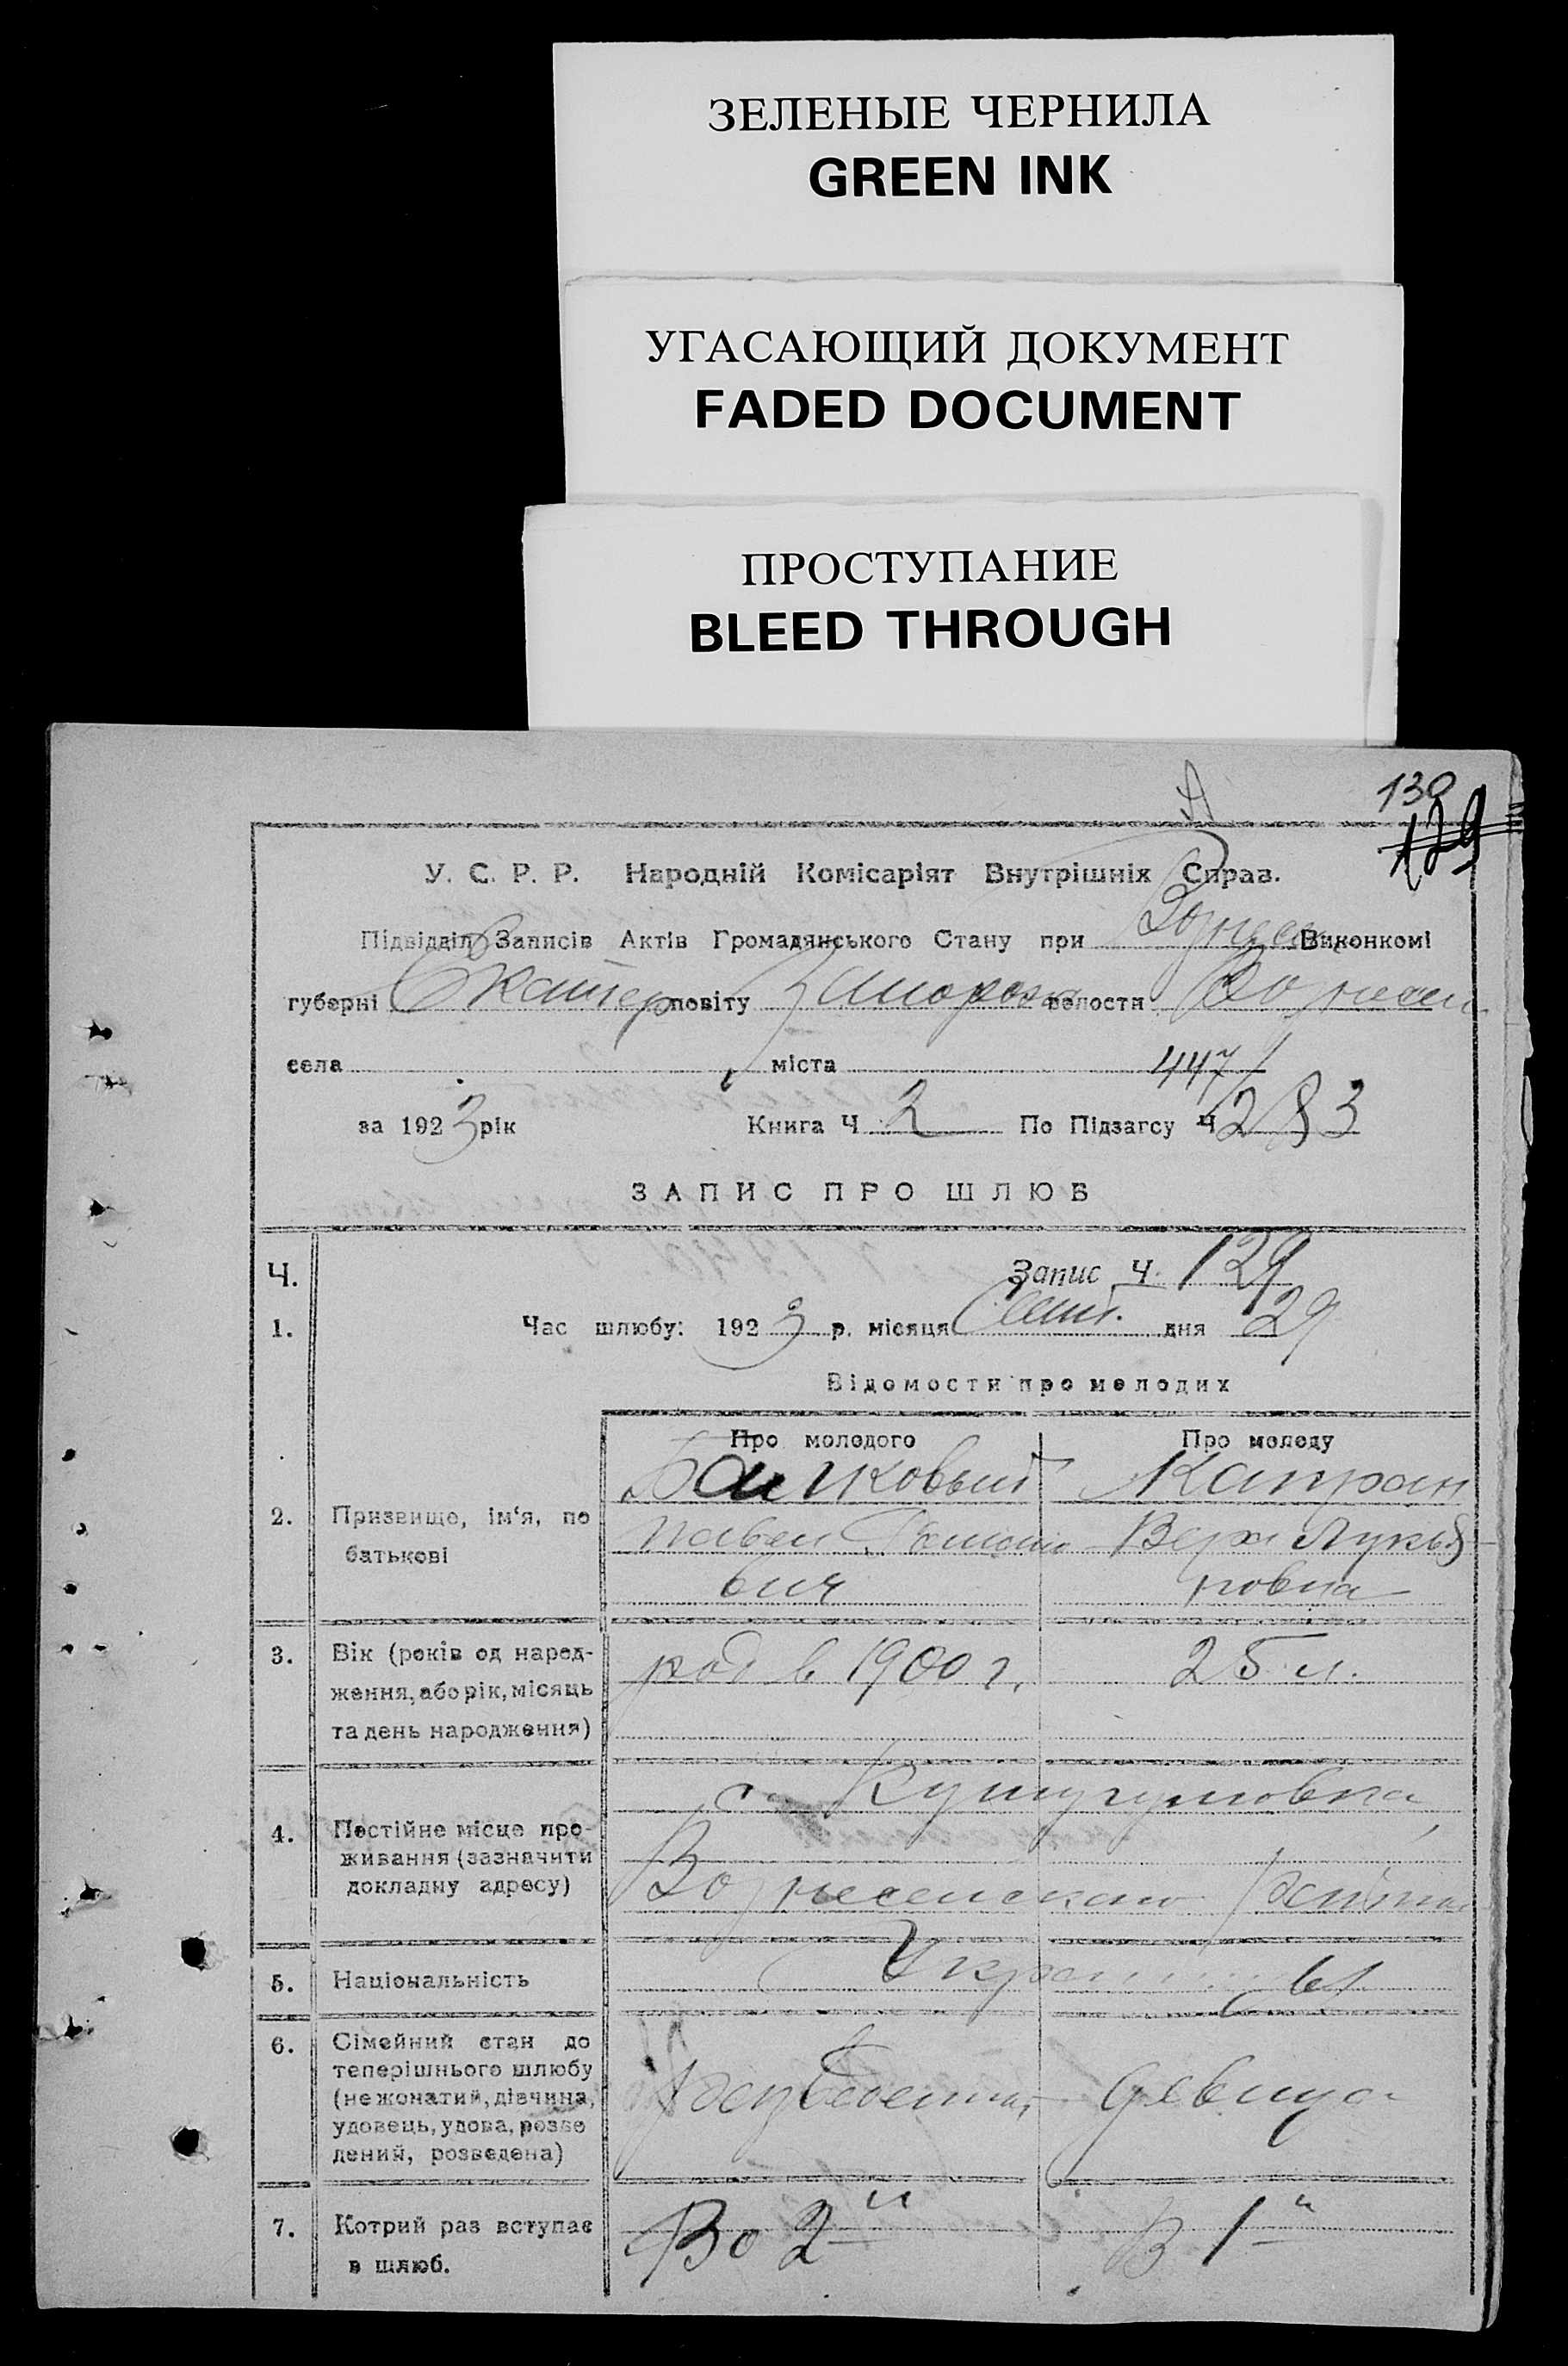 ЗЕЛЕНЫЕ ЧЕРНИЛА
GREEN INK
УГАСАЮЩИЙ ДОКУМЕНТ
FADED DOCUMENT
ПРОСТУПАНИЕ
BLEED THROUGH
130
129
У. С. Р. Р. Народній Комісаріят Внутрішніх Справ.
Підвідділ Записів Актів Громадянського Стану при Вознесен Виконкомі
губерні Екатер повіту Запорож волости Вознесен
села міста 447/
за 1923 рік Книга Ч 2 По Підзагсу Ч 283
ЗАПИС ПРО ШЛЮБ
Ч. Запис Ч. 129
1. Час шлюбу: 1923 р. місяця Сент. дня 29
Відомости про молодих
Про молодого Про молоду
2. Призвище, ім'я, по батькові
Павел
вич
Капран
Вера Лукья
новна
3. Вік (років од народ-
ження, або рік, місяць
та день народження)
род в 1900 г. 25 л.
4. Постійне місце про-
живання (зазначити
докладну адресу)
с. Кушугумовка
Вознесенского района
5. Національність
6. Сімейний стан до
теперішнього шлюбу
(не жонатий, дівчина,
удовець, удова, розве
дений, розведена)
девица
7. Котрий раз вступає
в шлюб.
Во 2й В 1й